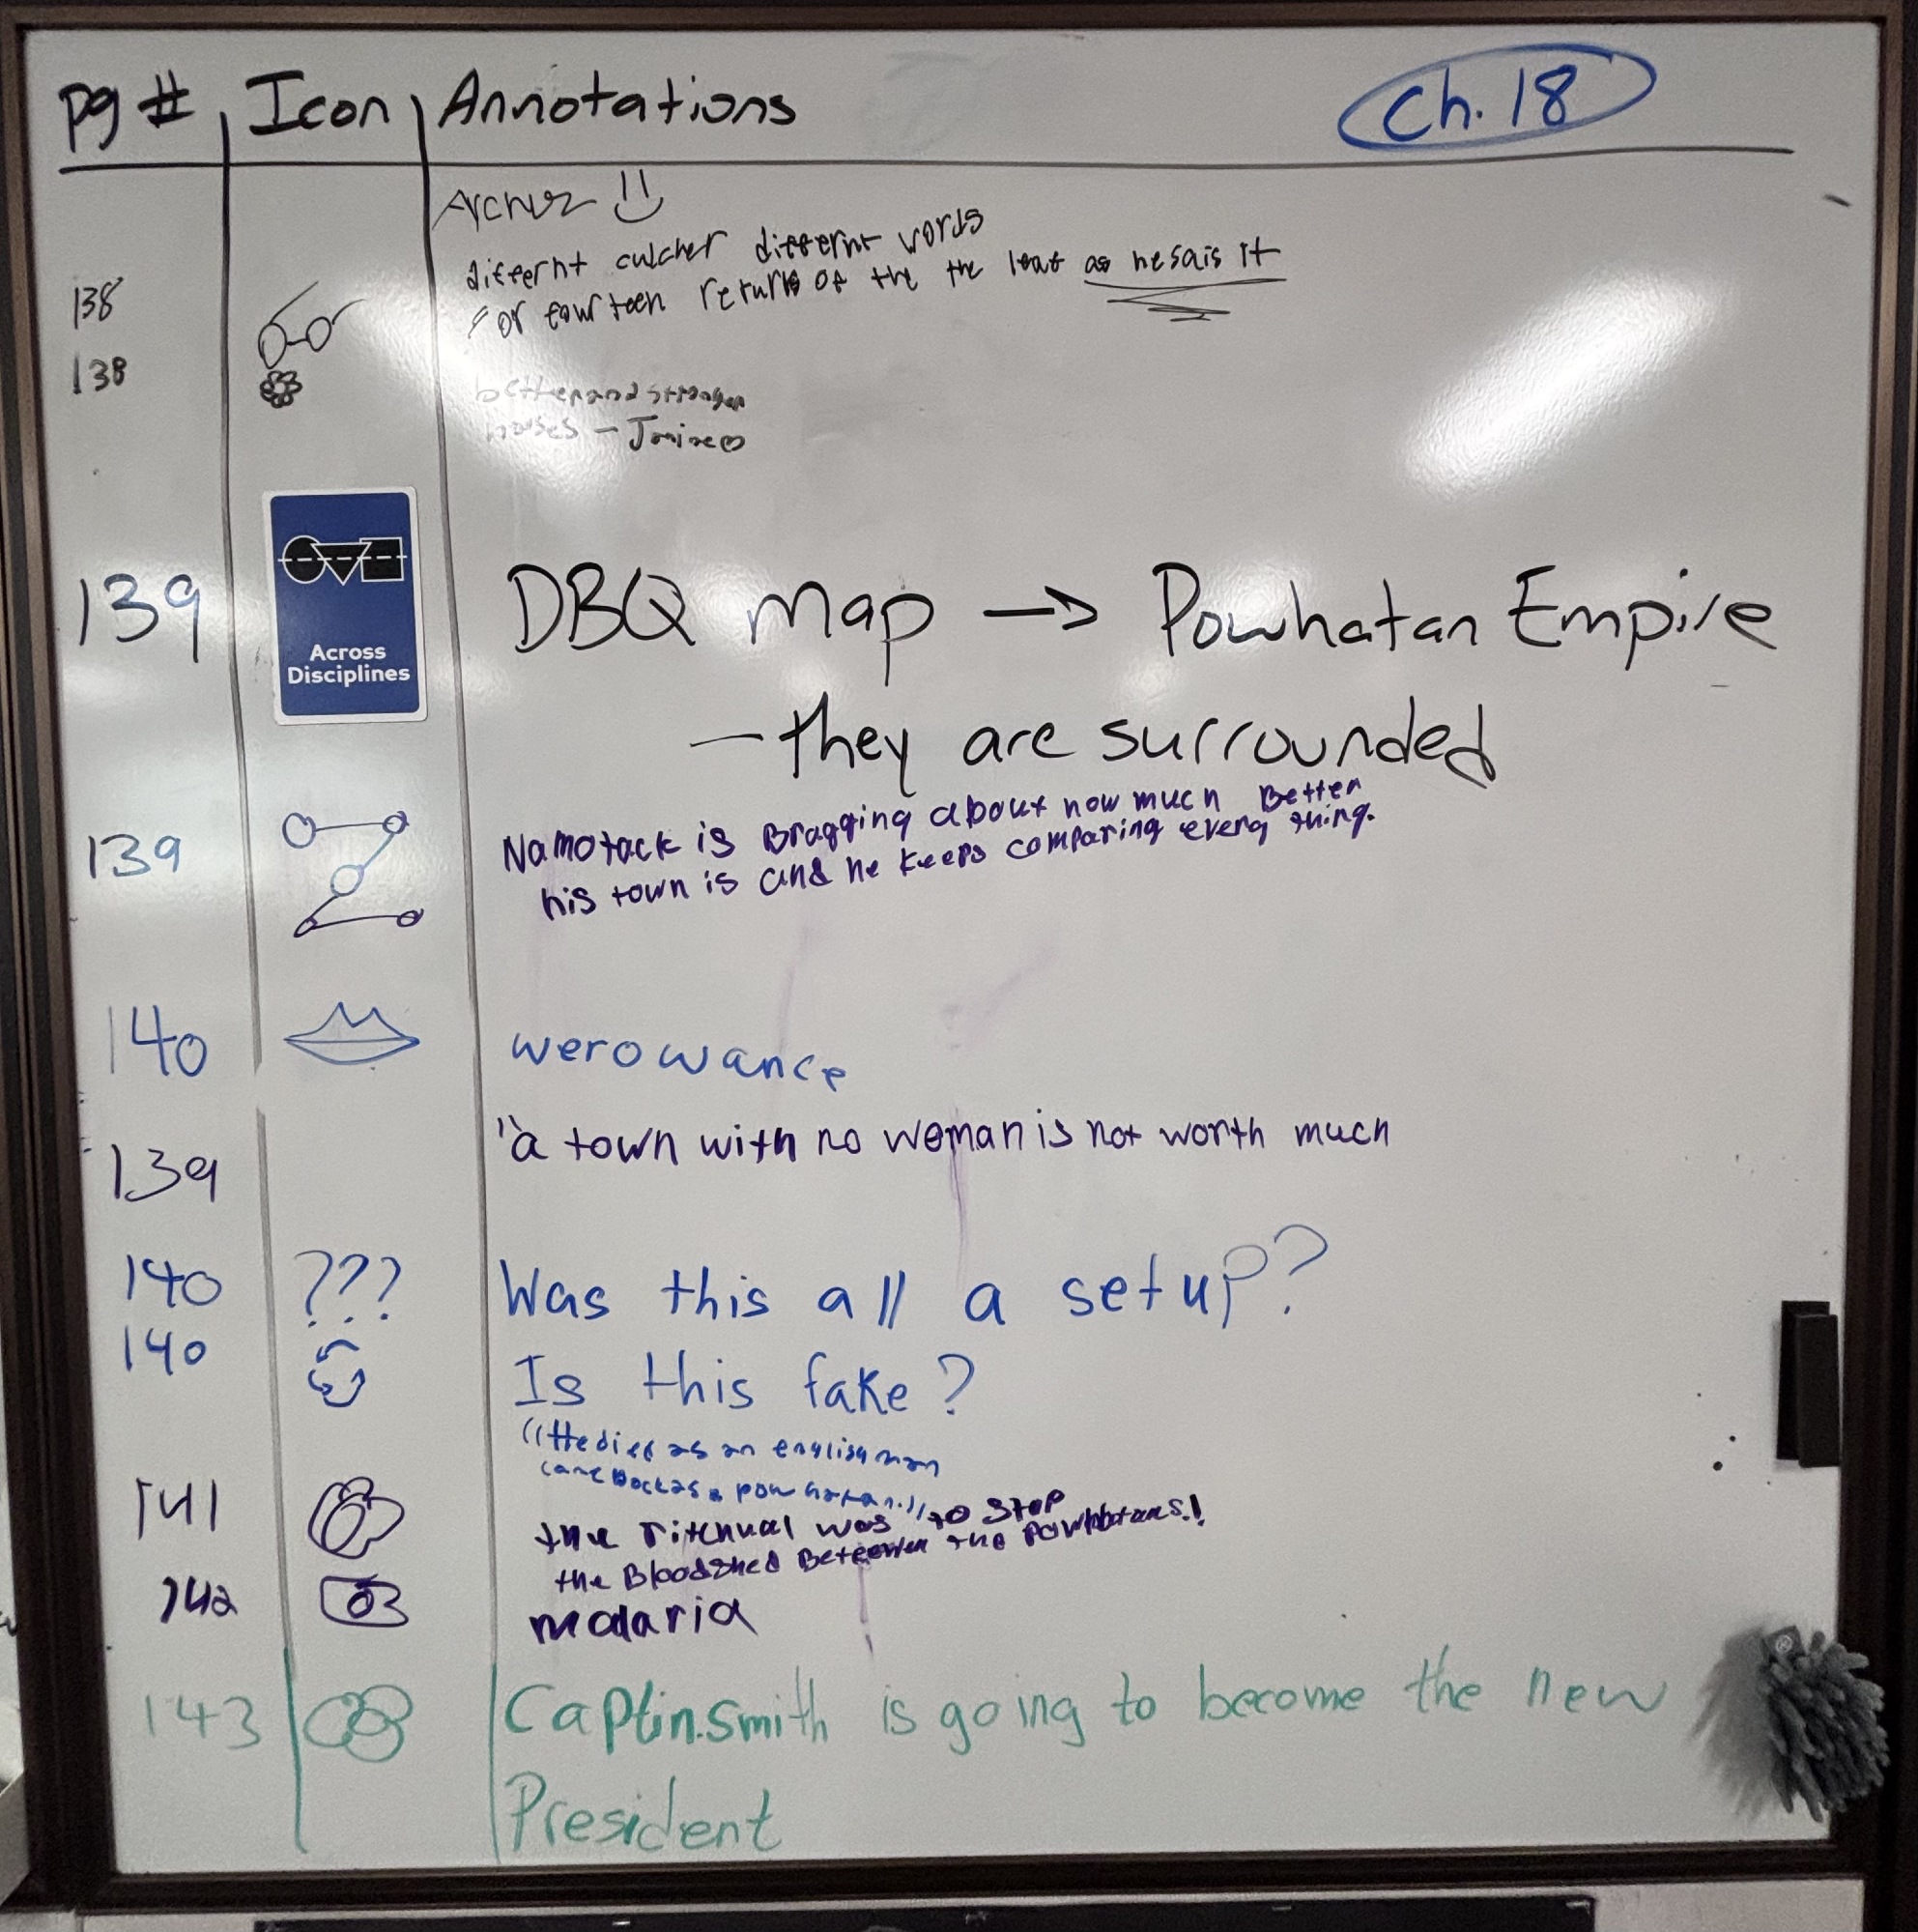 pg # Icon Annotations Ch. 18
Archer
138 differnt culcher differnt words
For fourteen returns of the the leat as hesais it
138 better and stronger
houses –
Across
Disciplines
139 DBQ map → Powhatan Empire
– they are surrounded
139 Namotack is Bragging about how much Better
his town is and he keeps comparing every thing.
140 werowance
139 "a town with no woman is not worth much
140 ??? Was this all a setup?
140 Is this fake?
"He dies as an englishman
came Back as a powhatan."
141 the ritchual was to stop
the Bloodshed Between the Powhatans!
142 malaria
143 Captin.Smith is going to become the new
President